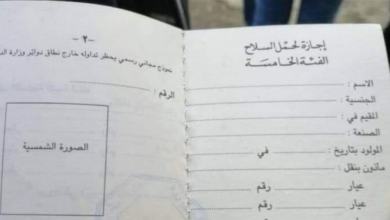 إجازة لحمل السلاح
الفئة الخامسة
الاسم :
الجنسية :
المقيم في :
الصنعة :
المولود بتاريخ : في
مأذون بنقل :
عيار رقم
عيار رقم
عيار رقم
-٢-
نموذج مجاني رسمي يحظر تداوله خارج نطاق دوائر وزارة
الرقم :
الصورة الشمسية